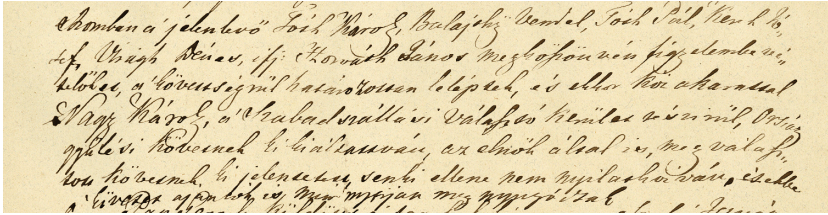 ekomban a' jelenlevő Tóth Károly, Balajthy Vendel, Tóth Pál, Kerek Jó-
sef, Virágh Dénes, ifj: Horváth János megköszönvén figyelembe vé-
telöket, a' követségrül határozottan leléptek, és ekkor köz akarattal
Nagy Károly, a' Szabadszállási Választó kerület részirül, Ország
gyülési követnek ki kiáltassván, az elnök által is, meg válasz-
tott követnek ki jelentetett, senki ellene nem nyilatkozván,
követet ajánlók is meg nyugodtak